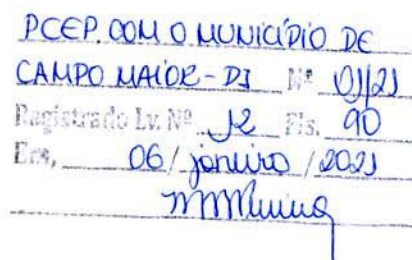 PCEP. COM O MUNICÍPIO DE
CAMPO MAIOR-PI Nº 01/21
Registrado Lv. Nº 12 Fls. 90
Em, 06/ janeiro /2021